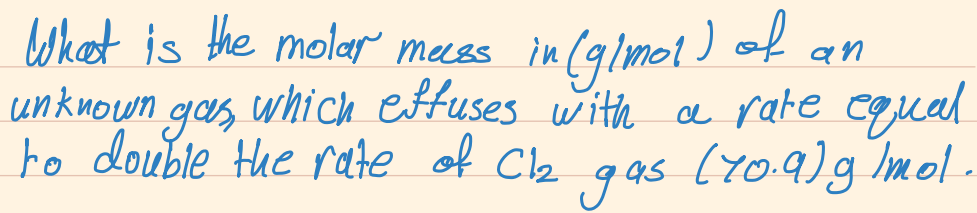 What is the molar mass in (g/mol) of an
unknown gas, which effuses with a rate equal
to double the rate of Cl2 gas (70.9) g/mol.